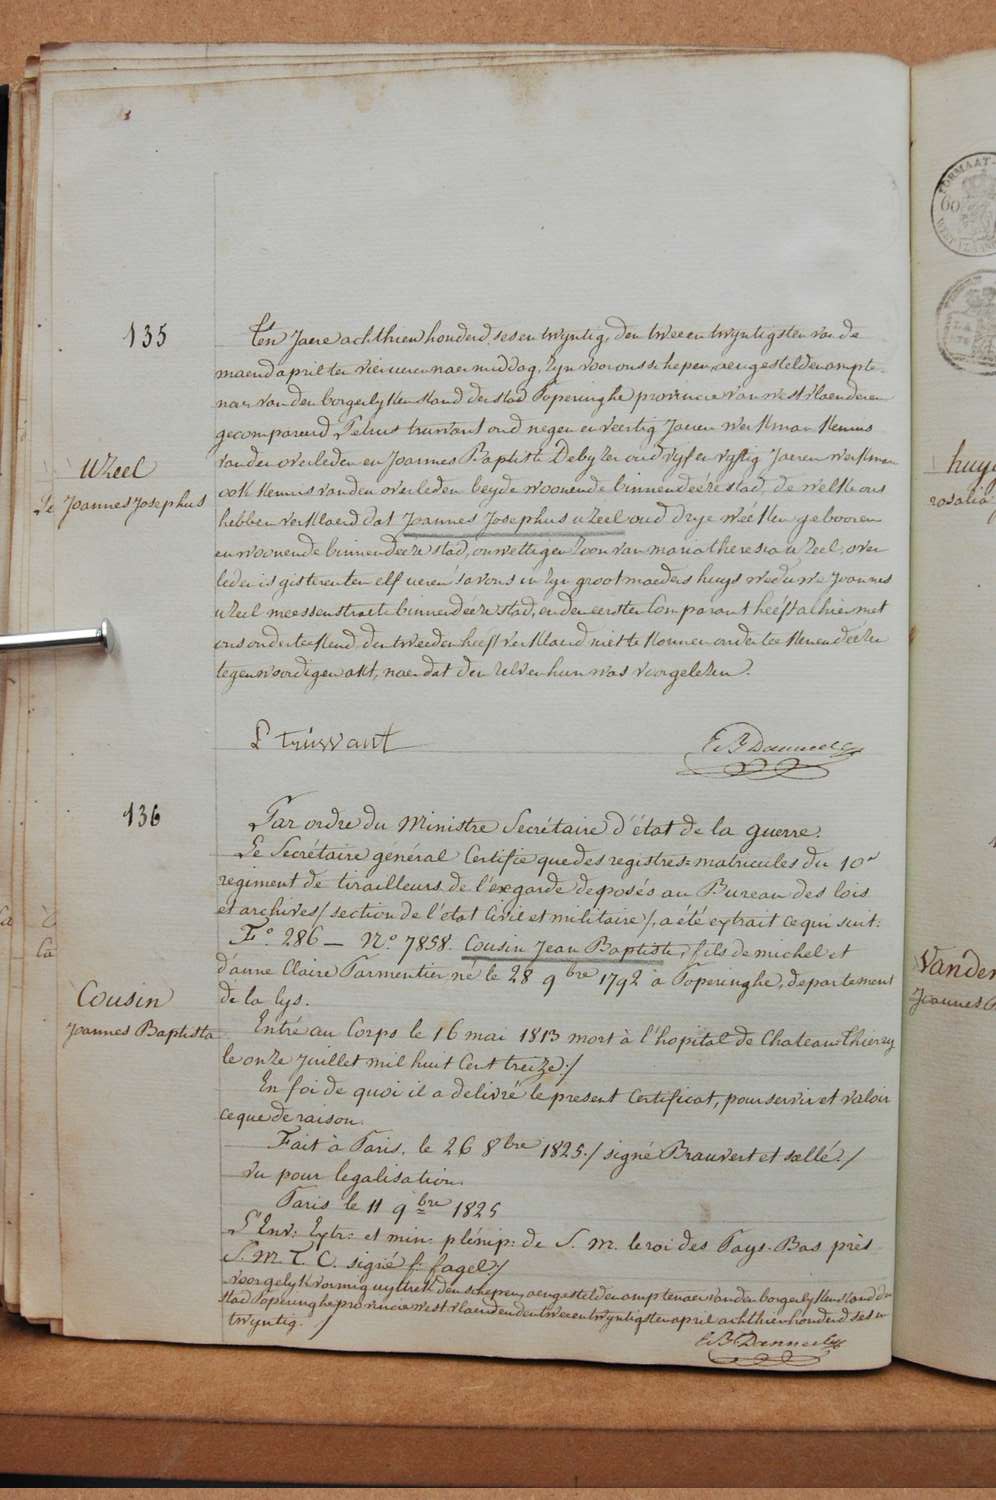 135
ten Jaere achthien honderd ses en twyntig, den twee en twyntigsten van de
maend april ten vier ueren naer middag, Zyn voor ons schepen, aengestelden ampte-
naer van den borgerlyken stand der stad Poperinghe provincie van westvlaenderen
gecompareerd Petrus truwant oud negen en veertig Jaeren werkman kennis
van den overleden en Joannes Baptiste Debyzer oud vyf en vyftig Jaeren werkman
ook kennis van den overleden beyde woonende binnen deéze stad, de welke ons
hebben verklaerd dat Joannes Josephus uZeel oud drye wéeken gebooren
en woonende binnen deeze stad, onwettigen Zoon van maria theresia uZeel, over
leden is gisteren ten elf ueren s'avons in Zyn grootmoeders huys weduwe Joannes
uZeel meessenstraete binnen déeze stad, en den eersten Comparant heéft alhier met
ons onderteékend den tweeden heeft verklaerd niet te konnen onderteekenen déézen
tegenwoordigen akt, naer dat den Zelven hun was voorgelezen.
uZeel
Joannes Josephus
P truwant
E B Danneel
136
Par ordre du Ministre Secrétaire d'état de la guerre.
Le Secrétaire général Certifie que des registres-matricules du 10e
regiment de tirailleurs de l'éx garde deposés au Bureau des lois
et archives / section de l'état Civil et militaire /, a été extrait ce qui suit:
Fo. 286 — No. 7858. Cousin Jean Baptiste, fils de michel et
d'anne Claire Parmentier né le 28 9bre 1792 à Poperinghe, departement
de la lys.
Cousin
Joannes Baptista
Entré au Corps le 16 mai 1813 mort à l'hopital de Chateau Thierry
le onze Juillet mil huit Cent treize./
En foi de quoi il a delivré le present Certificat, pour servir et valoir
ce que de raison.
Fait à Paris, le 26 8bre 1825./ signé Brauvert et scellé./
vu pour legalisation.
Paris le 11 9bre 1825
L'Env: Extr: et min: plénip: de S. M. le roi des Pays-Bas près
S. M. T. C. signé f. fagel /
voor gelykvormig uyttrek den schepen, aengestelden amptenaer van den borgerlyken stand der
stad Poperinghe provincie westvlaenderen den twee en twyntigsten april achthien honderd ses en
twyntig. /
E B Danneel
huyg
rosalia
Vanden
Joannes
60